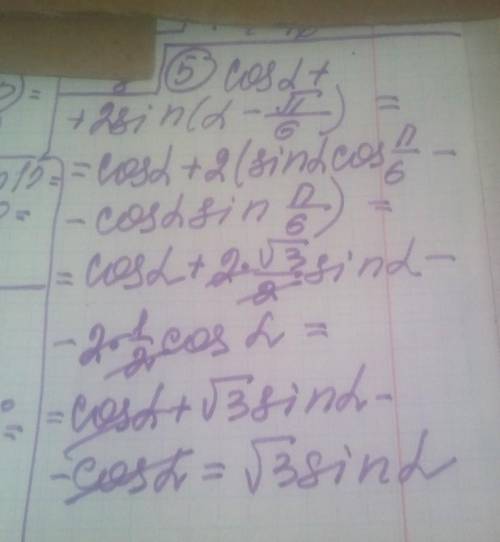 5 cosα +
+ 2sin(α - π/6) =
= cosα + 2(sinα cos π/6 -
- cosα sin π/6) =
= cosα + 2·√3/2 sinα -
- 2·1/2 cosα =
= cosα + √3 sinα -
- cosα = √3 sinα